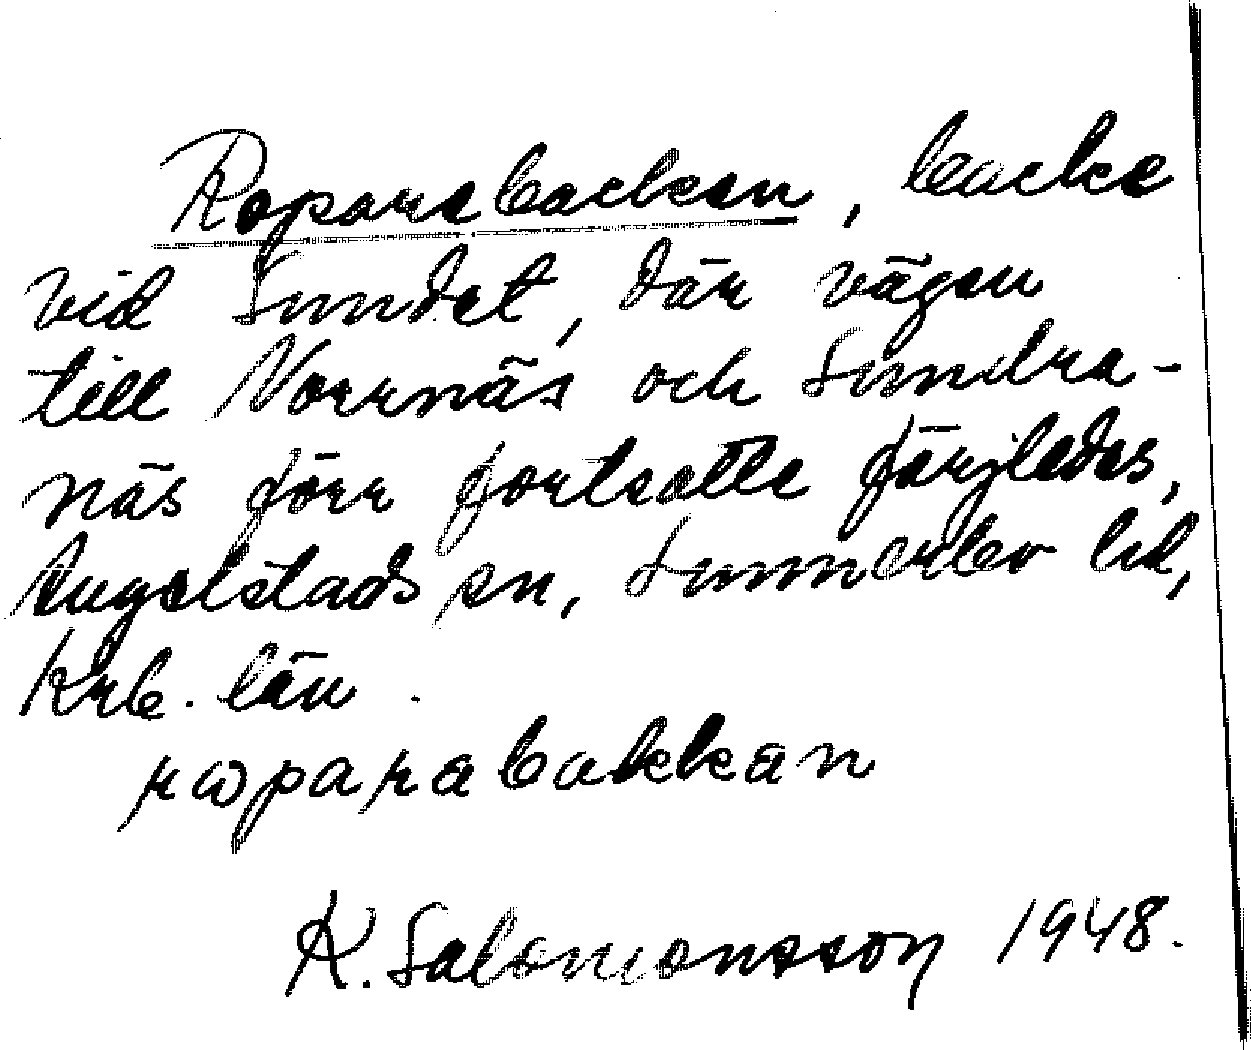 Roparebacken, backe
vid Sundet, där vägen
till Vornäs och Sundra-
näs förr fortsatte färjledes,
Angelstads sn, Sunnerbo hd,
Krb. län.
roparabakkan
K. Salomonsson 1948.